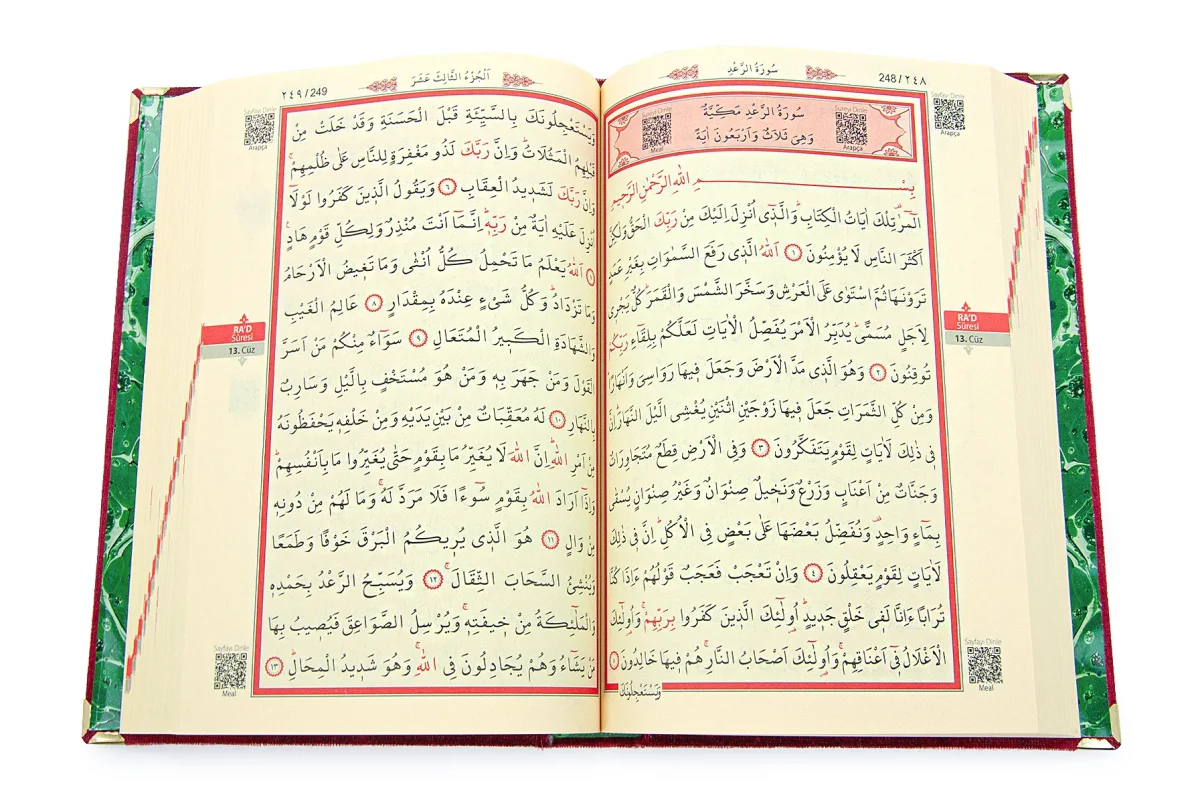 سُورَةُ الرَّعْدِ
248/٢٤٨
Sayfayı Dinle
Arapça
Sureyi Dinle
Meal
Sureyi Dinle
Arapça
سُورَةُ الرَّعْدِ مَكِّيَّةٌ
وَهِىَ ثَلَاثٌ وَاَرْبَعُونَ اٰيَةً
بِسْمِ اللّٰهِ الرَّحْمٰنِ الرَّحِيمِ
الٓمٓرٰ تِلْكَ اٰيَاتُ الْكِتَابِ وَالَّذٖٓى اُنْزِلَ اِلَيْكَ مِنْ رَبِّكَ الْحَقُّ وَلٰكِنَّ
اَكْثَرَ النَّاسِ لَا يُؤْمِنُونَ ١ اَللّٰهُ الَّذٖى رَفَعَ السَّمٰوَاتِ بِغَيْرِ عَمَدٍ
تَرَوْنَهَا ثُمَّ اسْتَوٰى عَلَى الْعَرْشِ وَسَخَّرَ الشَّمْسَ وَالْقَمَرَ كُلٌّ يَجْرٖى
لِاَجَلٍ مُسَمًّى يُدَبِّرُ الْاَمْرَ يُفَصِّلُ الْاٰيَاتِ لَعَلَّكُمْ بِلِقَٓاءِ رَبِّكُمْ
تُوقِنُونَ ٢ وَهُوَ الَّذٖى مَدَّ الْاَرْضَ وَجَعَلَ فٖيهَا رَوَاسِىَ وَاَنْهَارًا
وَمِنْ كُلِّ الثَّمَرَاتِ جَعَلَ فٖيهَا زَوْجَيْنِ اثْنَيْنِ يُغْشِى الَّيْلَ النَّهَارَ اِنَّ
فٖى ذٰلِكَ لَاٰيَاتٍ لِقَوْمٍ يَتَفَكَّرُونَ ٣ وَفِى الْاَرْضِ قِطَعٌ مُتَجَاوِرَاتٌ
وَجَنَّاتٌ مِنْ اَعْنَابٍ وَزَرْعٌ وَنَخٖيلٌ صِنْوَانٌ وَغَيْرُ صِنْوَانٍ يُسْقٰى
بِمَٓاءٍ وَاحِدٍ وَنُفَضِّلُ بَعْضَهَا عَلٰى بَعْضٍ فِى الْاُكُلِ اِنَّ فٖى ذٰلِكَ
لَاٰيَاتٍ لِقَوْمٍ يَعْقِلُونَ ٤ وَاِنْ تَعْجَبْ فَعَجَبٌ قَوْلُهُمْ ءَاِذَا كُنَّا
تُرَابًا ءَاِنَّا لَفٖى خَلْقٍ جَدٖيدٍ اُولٰٓئِكَ الَّذٖينَ كَفَرُوا بِرَبِّهِمْ وَاُولٰٓئِكَ
الْاَغْلَالُ فٖٓى اَعْنَاقِهِمْ وَاُولٰٓئِكَ اَصْحَابُ النَّارِ هُمْ فٖيهَا خَالِدُونَ ٥
وَيَسْتَعْجِلُونَكَ
RA'D
Sûresi
13. Cüz
Sayfayı Dinle
Meal
اَلْجُزْءُ الثَّالِثَ عَشَرَ
٢٤٩/249
Sayfayı Dinle
Arapça
وَيَسْتَعْجِلُونَكَ بِالسَّيِّئَةِ قَبْلَ الْحَسَنَةِ وَقَدْ خَلَتْ مِنْ
قَبْلِهِمُ الْمَثُلَاتُ وَاِنَّ رَبَّكَ لَذُو مَغْفِرَةٍ لِلنَّاسِ عَلٰى ظُلْمِهِمْ
وَاِنَّ رَبَّكَ لَشَدٖيدُ الْعِقَابِ ٦ وَيَقُولُ الَّذٖينَ كَفَرُوا لَوْلَٓا
اُنْزِلَ عَلَيْهِ اٰيَةٌ مِنْ رَبِّهٖ اِنَّمَٓا اَنْتَ مُنْذِرٌ وَلِكُلِّ قَوْمٍ هَادٍ
٧ اَللّٰهُ يَعْلَمُ مَا تَحْمِلُ كُلُّ اُنْثٰى وَمَا تَغٖيضُ الْاَرْحَامُ
وَمَا تَزْدَادُ وَكُلُّ شَىْءٍ عِنْدَهُ بِمِقْدَارٍ ٨ عَالِمُ الْغَيْبِ
وَالشَّهَادَةِ الْكَبٖيرُ الْمُتَعَالِ ٩ سَوَٓاءٌ مِنْكُمْ مَنْ اَسَرَّ
الْقَوْلَ وَمَنْ جَهَرَ بِهٖ وَمَنْ هُوَ مُسْتَخْفٍ بِالَّيْلِ وَسَارِبٌ
بِالنَّهَارِ ١٠ لَهُ مُعَقِّبَاتٌ مِنْ بَيْنِ يَدَيْهِ وَمِنْ خَلْفِهٖ يَحْفَظُونَهُ
مِنْ اَمْرِ اللّٰهِ اِنَّ اللّٰهَ لَا يُغَيِّرُ مَا بِقَوْمٍ حَتّٰى يُغَيِّرُوا مَا بِاَنْفُسِهِمْ
وَاِذَٓا اَرَادَ اللّٰهُ بِقَوْمٍ سُٓوءًا فَلَا مَرَدَّ لَهُ وَمَا لَهُمْ مِنْ دُونِهٖ
مِنْ وَالٍ ١١ هُوَ الَّذٖى يُرٖيكُمُ الْبَرْقَ خَوْفًا وَطَمَعًا
وَيُنْشِئُ السَّحَابَ الثِّقَالَ ١٢ وَيُسَبِّحُ الرَّعْدُ بِحَمْدِهٖ
وَالْمَلٰٓئِكَةُ مِنْ خٖيفَتِهٖ وَيُرْسِلُ الصَّوَاعِقَ فَيُصٖيبُ بِهَا
مَنْ يَشَٓاءُ وَهُمْ يُجَادِلُونَ فِى اللّٰهِ وَهُوَ شَدٖيدُ الْمِحَالِ ١٣
RA'D
Sûresi
13. Cüz
Sayfayı Dinle
Meal